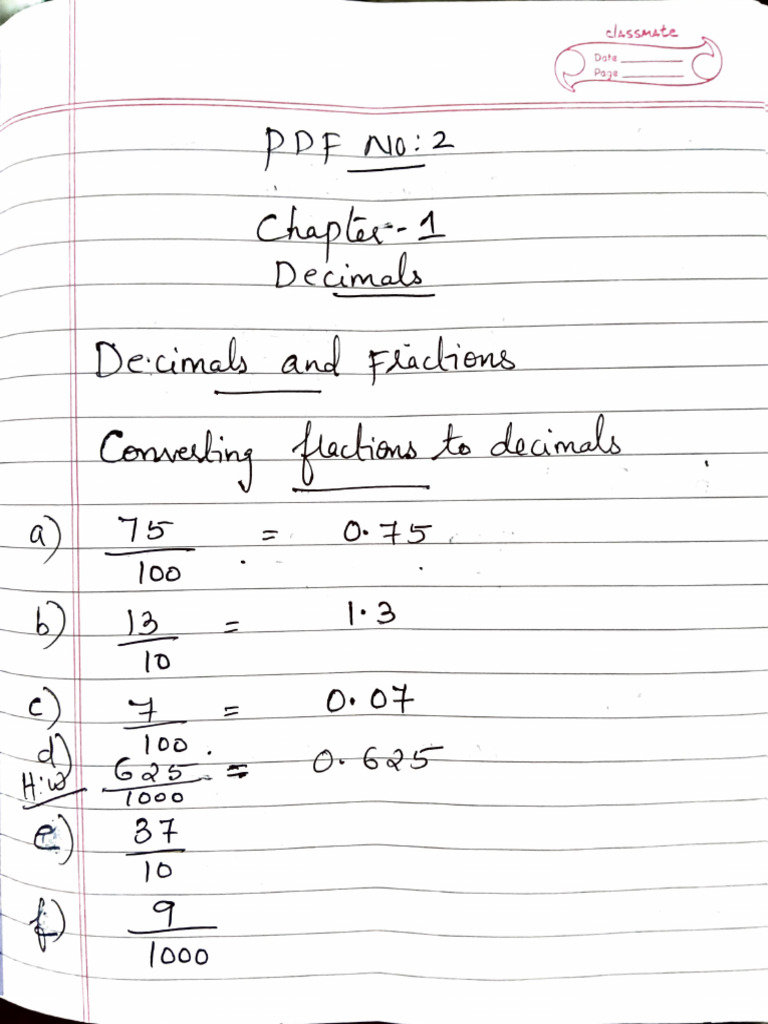 classmate
Date
Page
PDF No: 2
Chapter-1
Decimals
Decimals and Fractions
Converting fractions to decimals
a) 75/100 = 0.75
b) 13/10 = 1.3
c) 7/100 = 0.07
d) 625/1000 = 0.625
H.W
e) 37/10
f) 9/1000